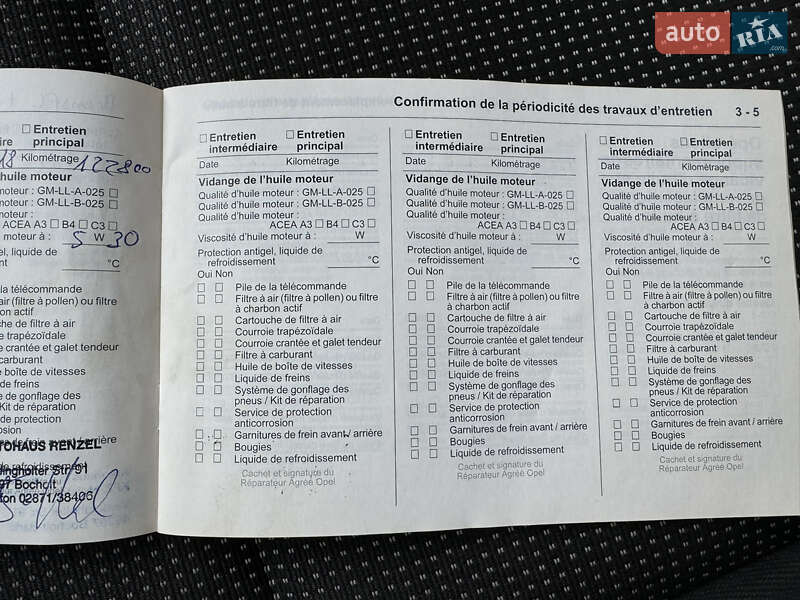 auto RIA.com
Confirmation de la périodicité des travaux d'entretien 3 - 5
Entretien principal
Kilométrage 122800
moteur
moteur : GM-LL-A-025
moteur : GM-LL-B-025
moteur :
ACEA A3 B4 C3
moteur à : 5 W 30
gel, liquide de
°C
la télécommande
air (filtre à pollen) ou filtre
actif
de filtre à air
trapézoïdale
crantée et galet tendeur
carburant
boîte de vitesses
de freins
de gonflage des
/ Kit de réparation
de protection
de frein avant / arrière
de refroidissement
AUTOHAUS RENZEL
Str. 91
Bocholt
02871/38406
Entretien intermédiaire
Entretien principal
Date Kilométrage
Vidange de l'huile moteur
Qualité d'huile moteur : GM-LL-A-025
Qualité d'huile moteur : GM-LL-B-025
Qualité d'huile moteur :
ACEA A3 B4 C3
Viscosité d'huile moteur à : W
Protection antigel, liquide de
refroidissement °C
Oui Non
Pile de la télécommande
Filtre à air (filtre à pollen) ou filtre
à charbon actif
Cartouche de filtre à air
Courroie trapézoïdale
Courroie crantée et galet tendeur
Filtre à carburant
Huile de boîte de vitesses
Liquide de freins
Système de gonflage des
pneus / Kit de réparation
Service de protection
anticorrosion
Garnitures de frein avant / arrière
Bougies
Liquide de refroidissement
Cachet et signature du
Réparateur Agréé Opel
Entretien intermédiaire
Entretien principal
Date Kilométrage
Vidange de l'huile moteur
Qualité d'huile moteur : GM-LL-A-025
Qualité d'huile moteur : GM-LL-B-025
Qualité d'huile moteur :
ACEA A3 B4 C3
Viscosité d'huile moteur à : W
Protection antigel, liquide de
refroidissement °C
Oui Non
Pile de la télécommande
Filtre à air (filtre à pollen) ou filtre
à charbon actif
Cartouche de filtre à air
Courroie trapézoïdale
Courroie crantée et galet tendeur
Filtre à carburant
Huile de boîte de vitesses
Liquide de freins
Système de gonflage des
pneus / Kit de réparation
Service de protection
anticorrosion
Garnitures de frein avant / arrière
Bougies
Liquide de refroidissement
Cachet et signature du
Réparateur Agréé Opel
Entretien intermédiaire
Entretien principal
Date Kilométrage
Vidange de l'huile moteur
Qualité d'huile moteur : GM-LL-A-025
Qualité d'huile moteur : GM-LL-B-025
Qualité d'huile moteur :
ACEA A3 B4 C3
Viscosité d'huile moteur à : W
Protection antigel, liquide de
refroidissement °C
Oui Non
Pile de la télécommande
Filtre à air (filtre à pollen) ou filtre
à charbon actif
Cartouche de filtre à air
Courroie trapézoïdale
Courroie crantée et galet tendeur
Filtre à carburant
Huile de boîte de vitesses
Liquide de freins
Système de gonflage des
pneus / Kit de réparation
Service de protection
anticorrosion
Garnitures de frein avant / arrière
Bougies
Liquide de refroidissement
Cachet et signature du
Réparateur Agréé Opel